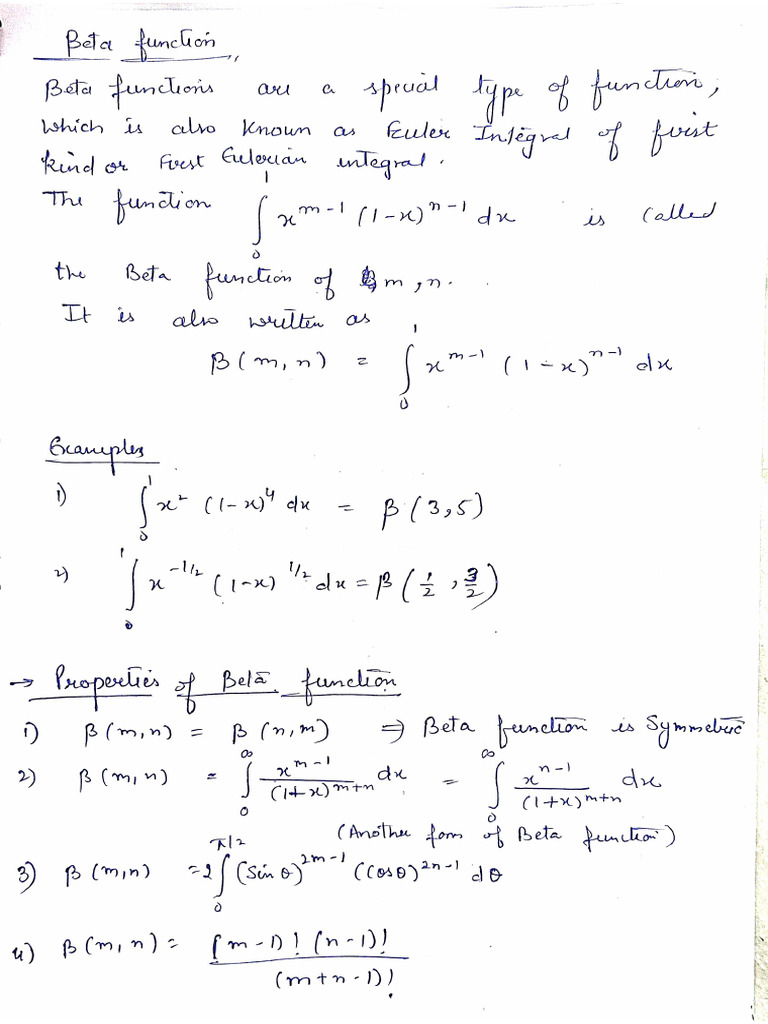 Beta function
Beta functions are a special type of function,
which is also known as Euler Integral of first
kind or First Eulerian integral.
The function ∫₀¹ x^(m-1) (1-x)^(n-1) dx is called
the Beta function of m, n.
It is also written as
β(m, n) = ∫₀¹ x^(m-1) (1-x)^(n-1) dx
Examples
1) ∫₀¹ x² (1-x)⁴ dx = β(3,5)
2) ∫₀¹ x^(-1/2) (1-x)^(1/2) dx = β(1/2, 3/2)
→ Properties of Beta function
1) β(m,n) = β(n,m) ⇒ Beta function is Symmetric
2) β(m,n) = ∫₀^∞ x^(m-1)/(1+x)^(m+n) dx = ∫₀^∞ x^(n-1)/(1+x)^(m+n) dx
(Another form of Beta function)
3) β(m,n) = 2∫₀^(π/2) (Sin θ)^(2m-1) (Cos θ)^(2n-1) dθ
4) β(m,n) = (m-1)! (n-1)! / (m+n-1)!